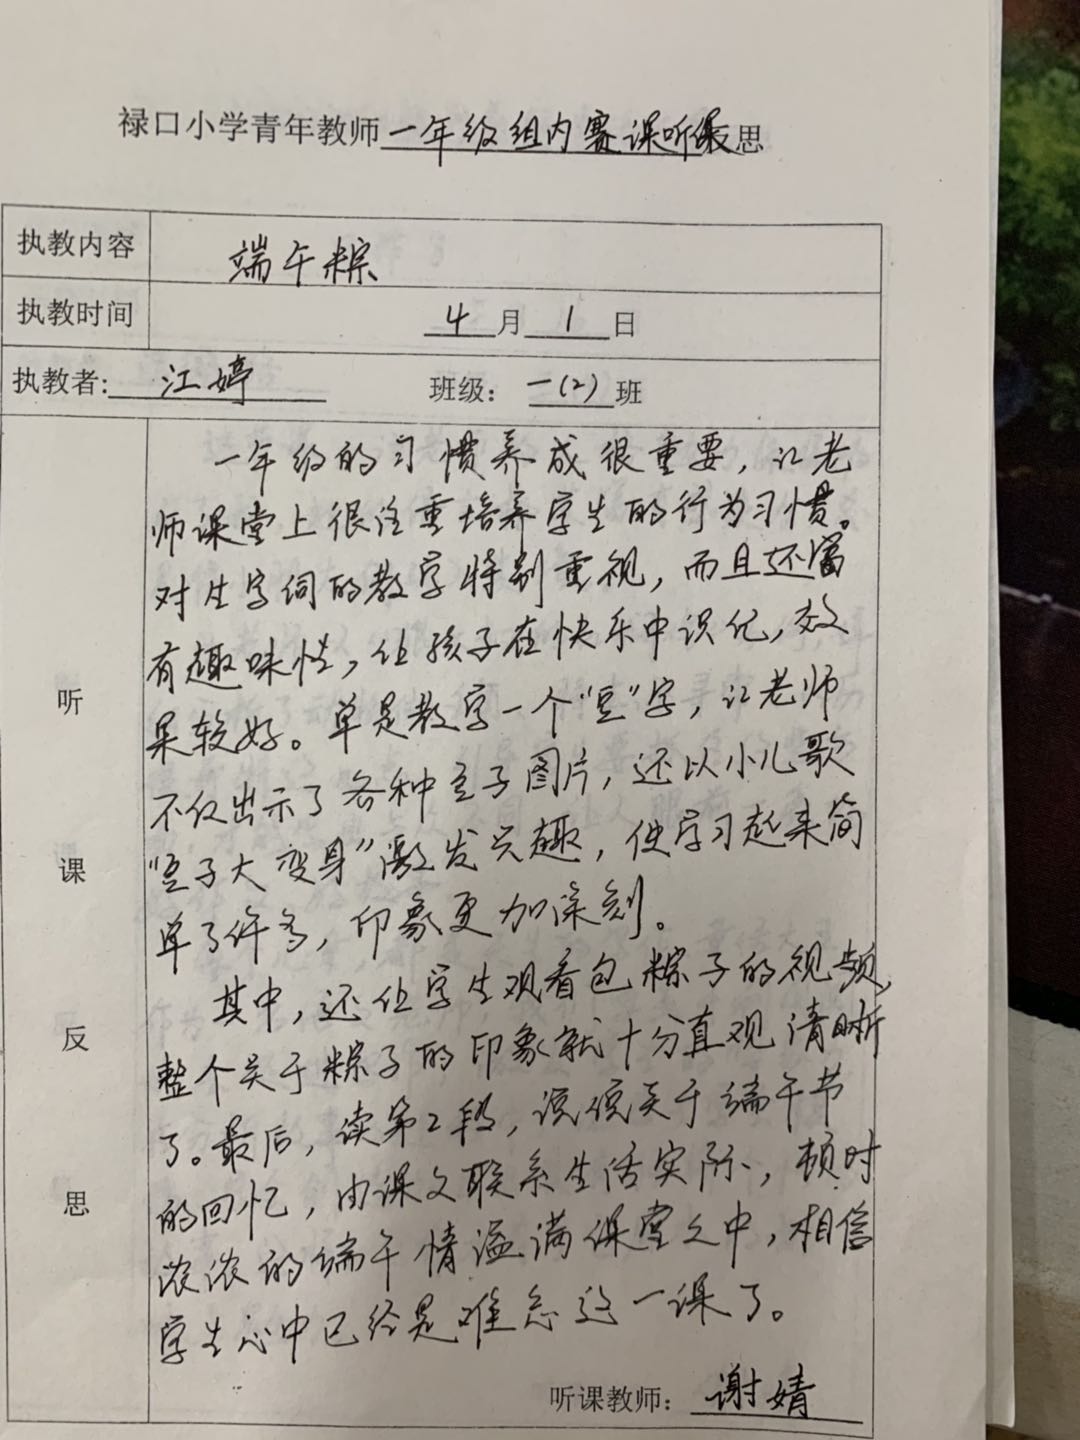 禄口小学青年教师一年级组内赛课听课反思
执教内容 端午粽
执教时间 4月1日
执教者: 江婷 班级: 一(2)班
听课反思
一年级的习惯养成很重要，江老
师课堂上很注重培养学生的行为习惯。
对生字词的教学特别重视，而且还富
有趣味性，让孩子在快乐中识记，效
果较好。单是教学一个"豆"字，江老师
不仅出示了各种豆子图片，还以小儿歌
"豆子大变身"激发兴趣，使学习起来简
单了许多，印象更加深刻。
其中，还让学生观看包粽子的视频，
整个关于粽子的印象就十分直观清晰
了。最后，读第2段，说说关于端午节
的回忆，由课文联系生活实际，顿时
浓浓的端午情溢满课堂之中，相信
学生心中已经是难忘这一课了。
听课教师: 谢婧